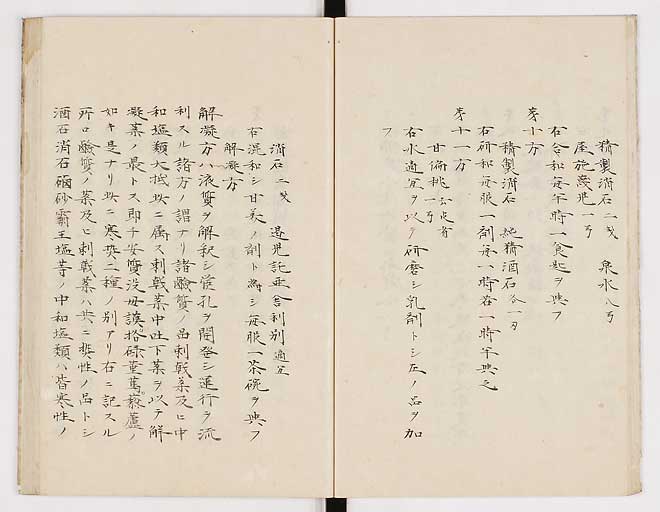 精製消石二戔　泉水八弓
屋施幾児一弓
右合和毎半時一食匙ヲ與フ
第十方
精製消石　純精酒石各一刄
右研和毎服一剤毎一時若一時半與之
第十一方
甘扁桃去皮者
一弓
右水適宜ヲ以テ研磨シ乳剤トシ左ノ品ヲ加
フ
消石二戔　適宜
右混和シ甘柔ノ剤ト為シ毎服一茶碗ヲ與フ
解凝方
解凝方ハ液質ヲ解釈シ管孔ヲ開発シ運行ヲ流
利スル諸方ノ謂ナリ諸醶質ノ品刺戟薬及ヒ中
和塩類大抵此ニ属ス刺戟薬中吐下薬ヲ以テ解
凝薬ノ最トス即チ安質没母
如キ是ナリ此ニ寒熱二種ノ別アリ右ニ記スル
所ロ醶質ノ薬及ヒ刺戟薬ハ共ニ熱性ノ品トシ
酒石消石硇砂覇王塩等ノ中和塩類ハ皆寒性ノ